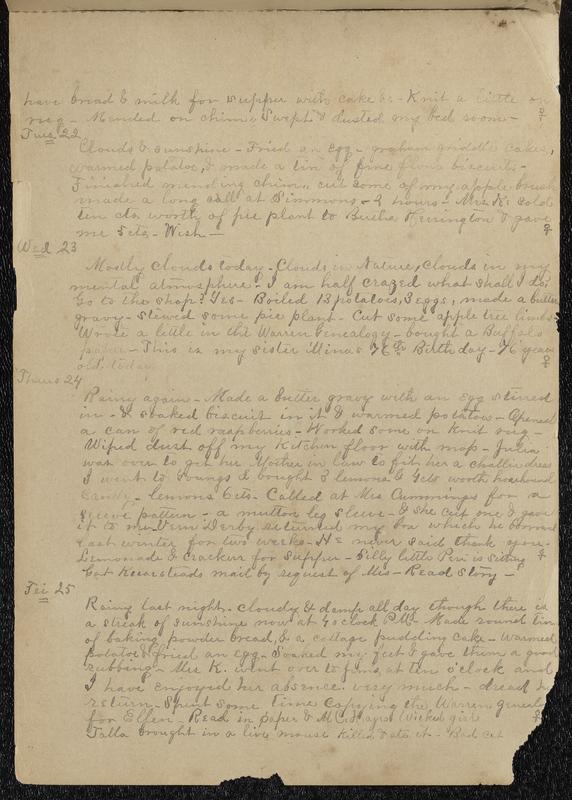 have bread & milk for supper with cake &c - Knit a little on
rug - Mended on chimn. Swept & dusted my bed room -
Tues 22
Clouds & sunshine - Fried an egg - graham griddle cakes,
warmed potatoe, & made a tin of fine flour biscuits -
Finished mending chimn. cut some of my apple brush
made a long call at Simmons - 2 hours - Mrs K. sold
ten cts worth of pie plant to Bertha Herrington & gave
me 5 cts - Wish -
Wed 23
Mostly clouds today - Clouds in Nature, clouds in my
mental atmosphere - I am half crazed what shall I do,
Go to the shop? Yes - Boiled 13 potatoes, 3 eggs, made a butter
gravy - stewed some pie plant - Cut some apple tree limbs
Wrote a little in the Warren Genealogy - bought a Buffalo
paper - This is my sister Minas 76th Birthday - 76 years
old today
Thurs 24
Rainy again - Made a butter gravy with an egg stirred
in - & soaked biscuit in it & warmed potatoes - Opened
a can of red raspberries - Worked some on knit rug -
Wiped dust off my kitchen floor with mop - Julia
was over to get her Mother in law to fit her a challie dress
I went to Youngs & bought 3 lemons & worth hoarhound
candy - lemons 6 cts - Called at Mrs Cummings for a
sleeve pattern - a mutton leg sleeve - & she cut one & gave
it to me. Vern Derby returned my which he borrowed
last winter for two weeks - He never said thank you -
Lemonade & crackers for supper - Silly little is
Got Keansteads mail by request of Mrs - Read Story -
Fri 25
Rainy last night - cloudy & damp all day though there is
a streak of sunshine now at 4 o'clock P.M. Made round tin
of baking powder bread, & a cottage pudding cake - Warmed
potatoe & fried an egg - Soaked my feet & gave them a good
rubbing - Mrs K. went over to at ten o'clock and
I have enjoyed her absence very much - dread her
return - Spent some time copying the Warren geneal
for Ellen - Read in paper & Wicked girl
brought in a live mouse killed & ate it - Bad cat